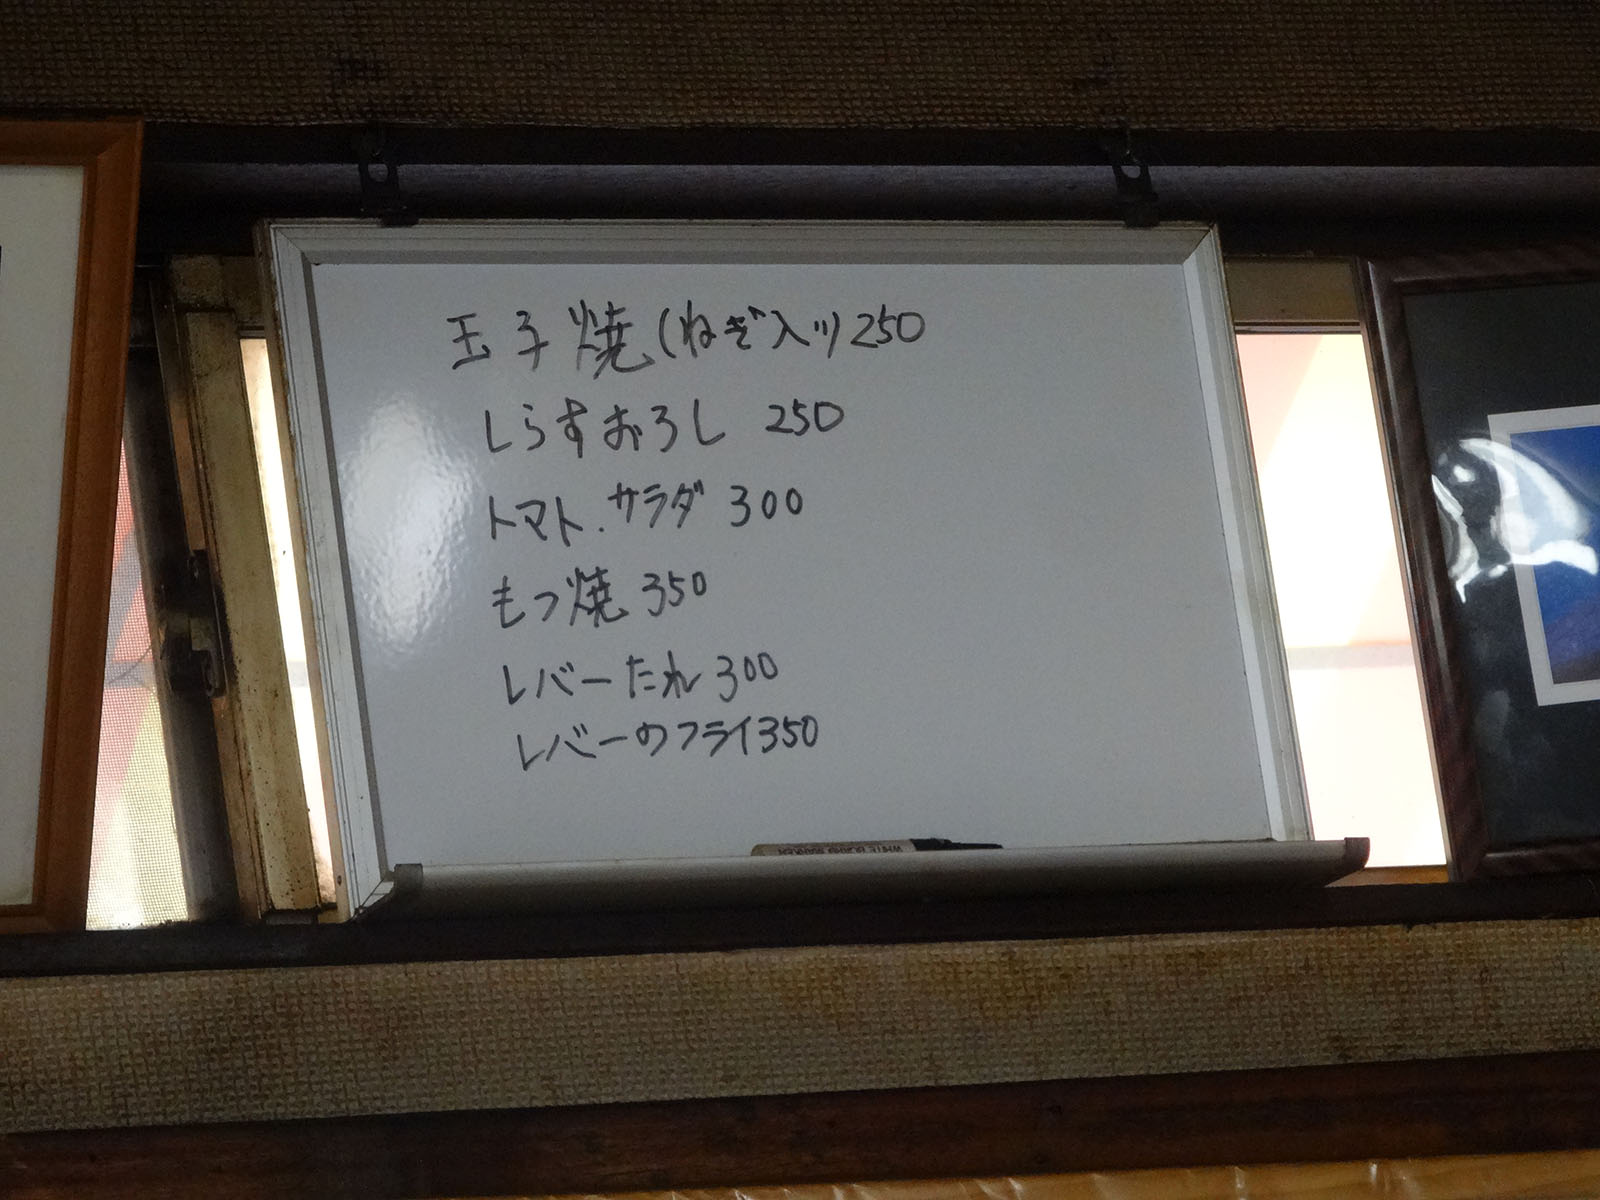 玉子焼(ねぎ入り)250
しらすおろし 250
トマト.サラダ 300
もつ焼 350
レバーたれ 300
レバーのフライ350
WHITE BOARD MARKER